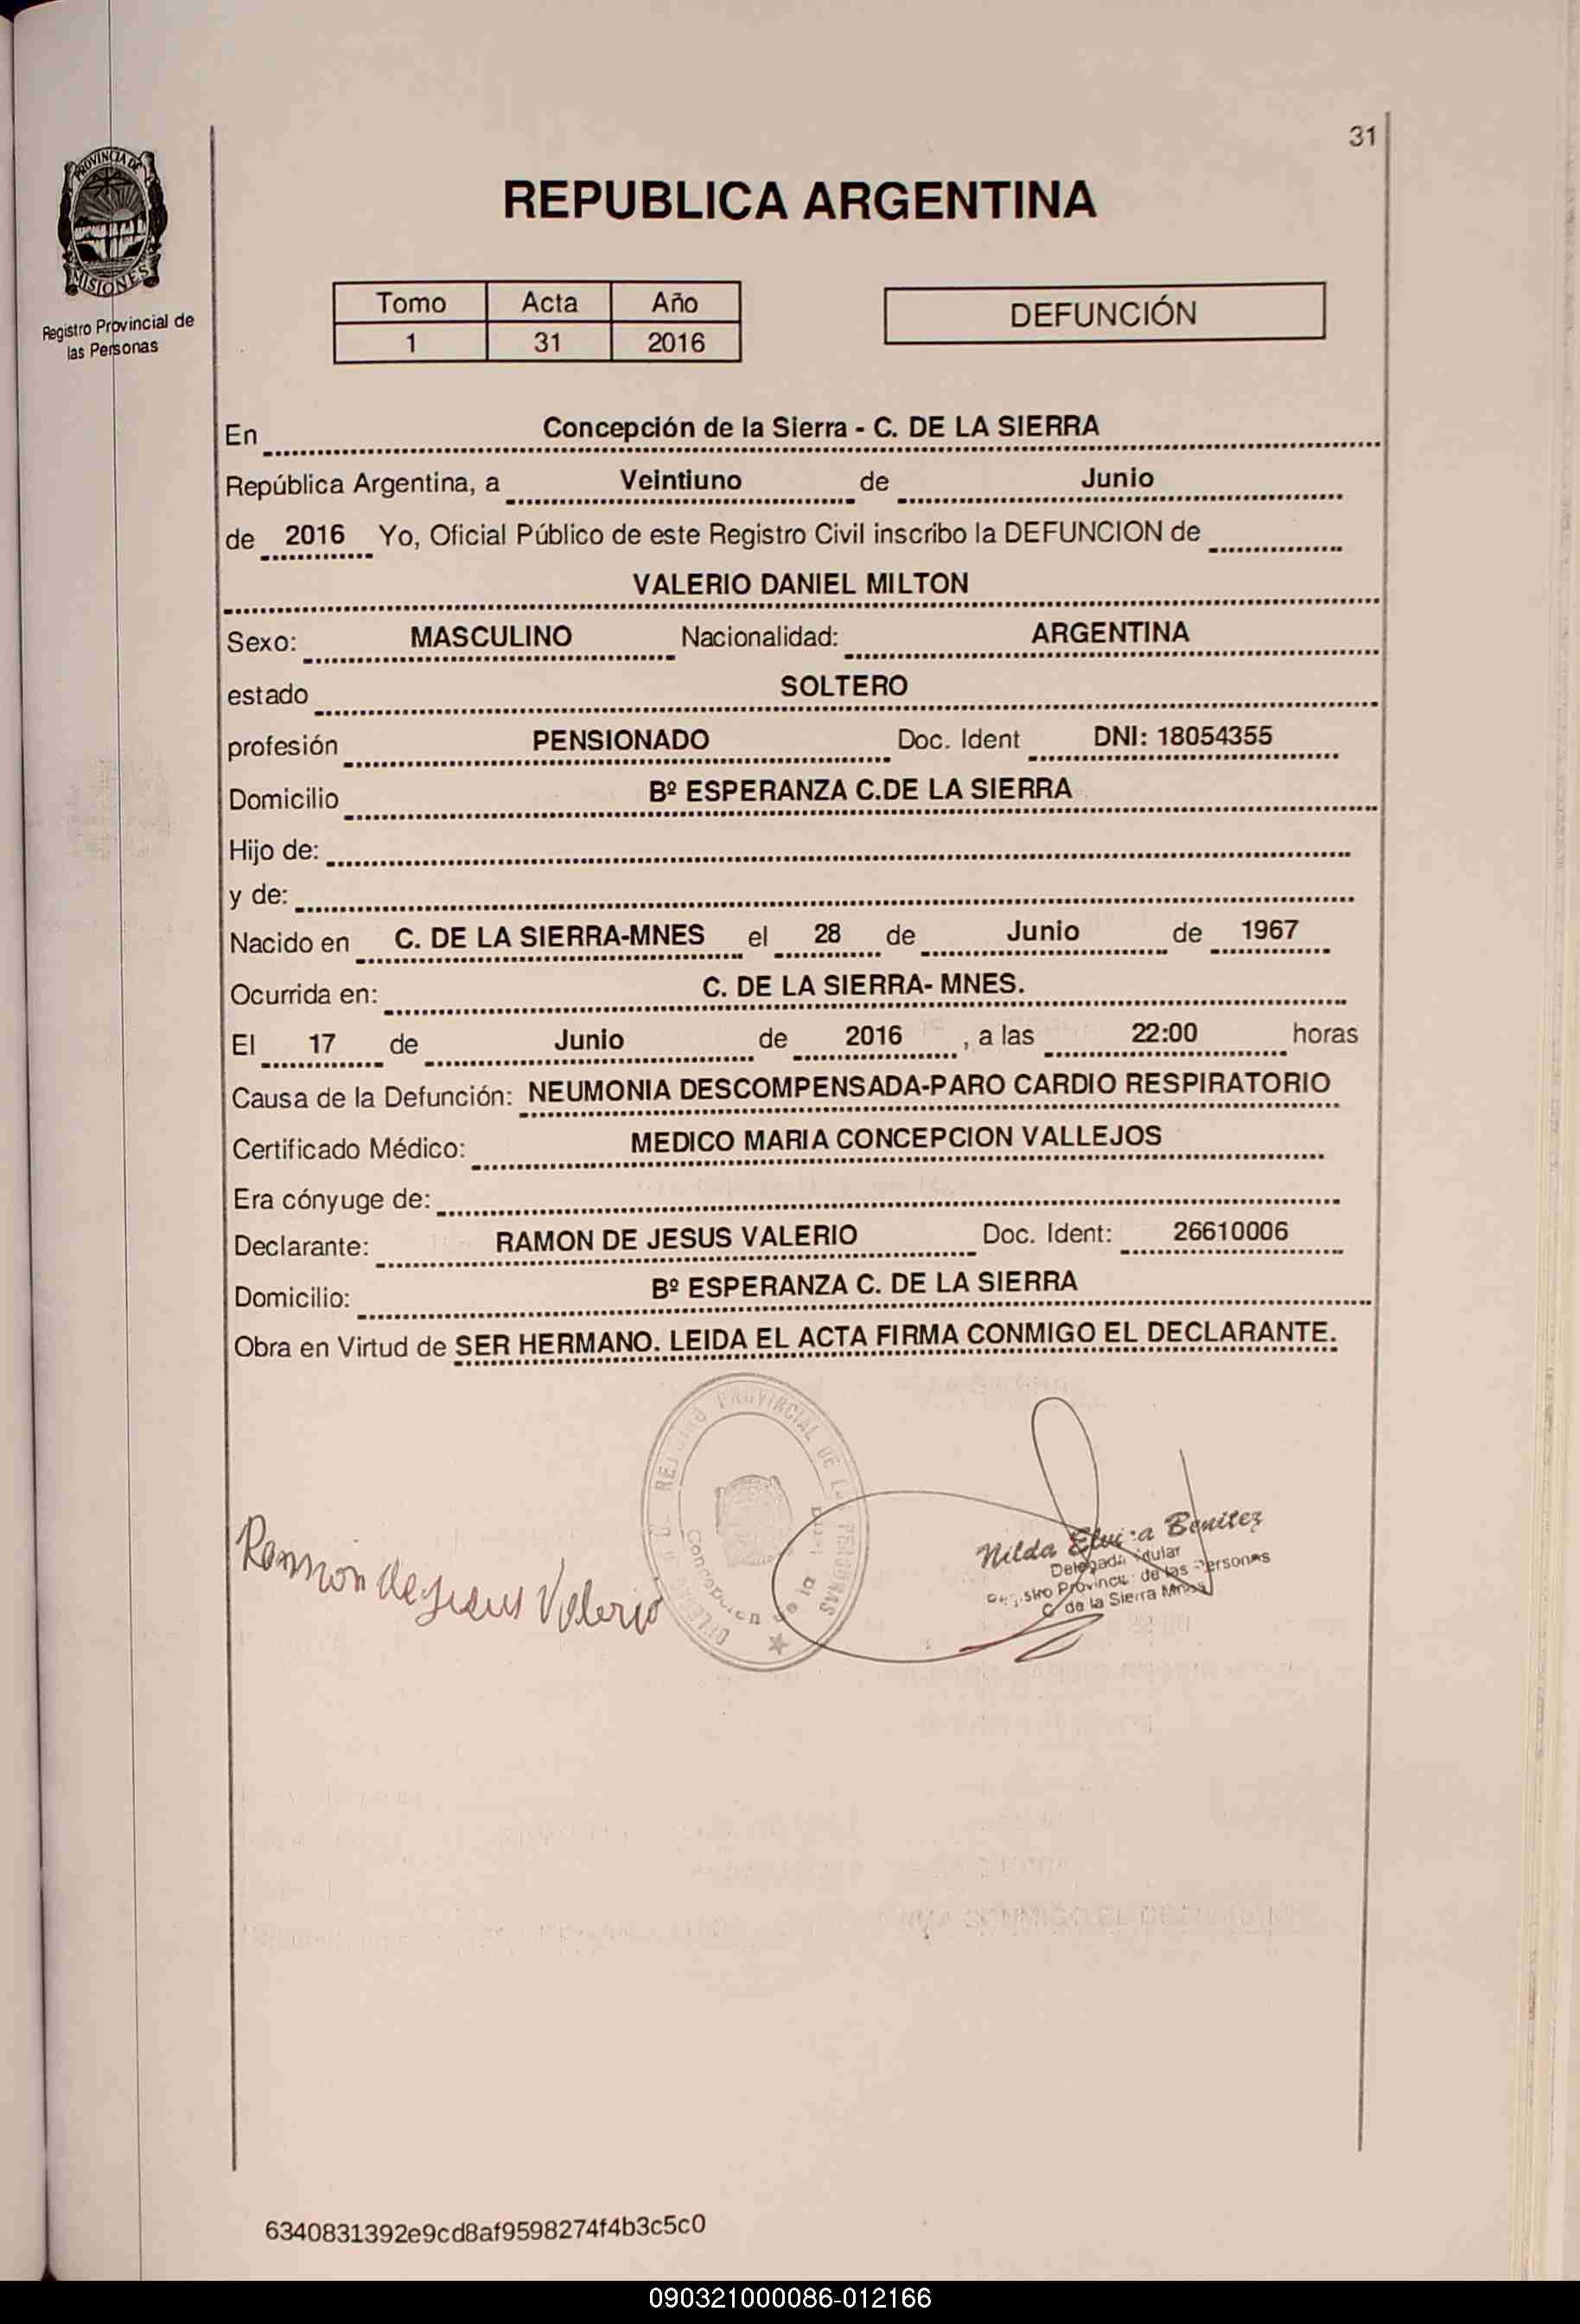 31
PROVINCIA DE
MISIONES
Registro Provincial de
las Personas
REPUBLICA ARGENTINA
Tomo Acta Año
1 31 2016
DEFUNCIÓN
En Concepción de la Sierra - C. DE LA SIERRA
República Argentina, a Veintiuno de Junio
de 2016 Yo, Oficial Público de este Registro Civil inscribo la DEFUNCION de
VALERIO DANIEL MILTON
Sexo: MASCULINO Nacionalidad: ARGENTINA
estado SOLTERO
profesión PENSIONADO Doc. Ident DNI: 18054355
Domicilio Bº ESPERANZA C.DE LA SIERRA
Hijo de:
y de:
Nacido en C. DE LA SIERRA-MNES el 28 de Junio de 1967
Ocurrida en: C. DE LA SIERRA- MNES.
El 17 de Junio de 2016 , a las 22:00 horas
Causa de la Defunción: NEUMONIA DESCOMPENSADA-PARO CARDIO RESPIRATORIO
Certificado Médico: MEDICO MARIA CONCEPCION VALLEJOS
Era cónyuge de:
Declarante: RAMON DE JESUS VALERIO Doc. Ident: 26610006
Domicilio: Bº ESPERANZA C. DE LA SIERRA
Obra en Virtud de SER HERMANO. LEIDA EL ACTA FIRMA CONMIGO EL DECLARANTE.
PROVINCIAL DE
Concepcion de la
Ramon de Jesus Valerio
Nilda Elvira Benitez
Delegada Titular
Registro Provincial de las Personas
C. de la Sierra Mnes
6340831392e9cd8af9598274f4b3c5c0
090321000086-012166